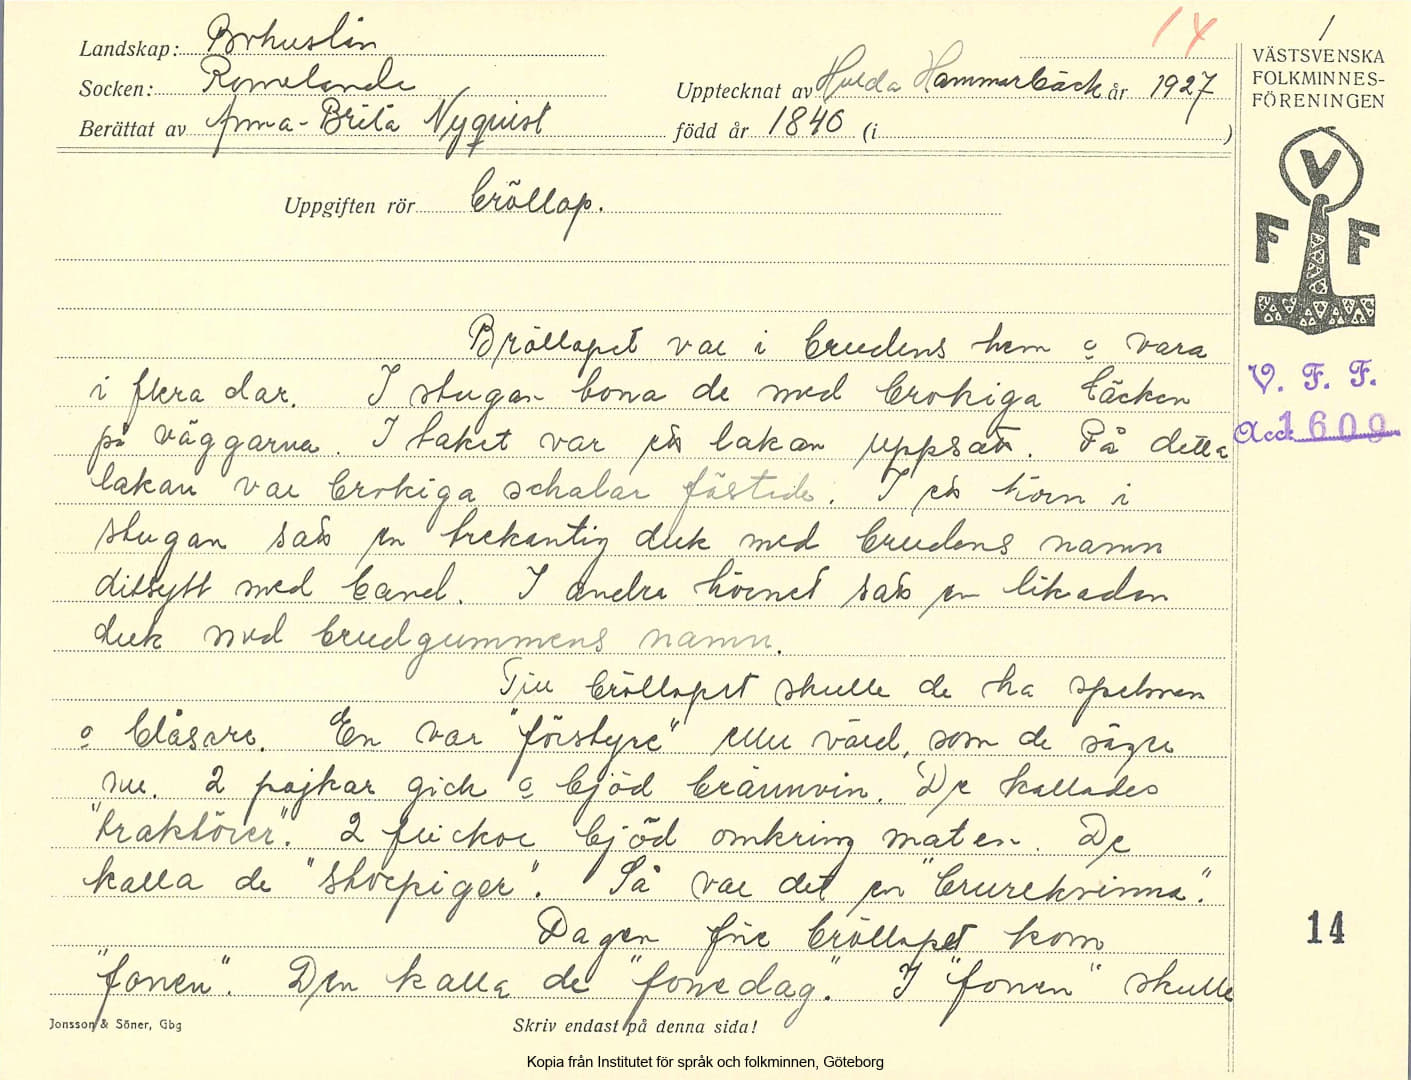 14
1
Landskap: Bohuslän
Socken: Romelanda
Upptecknat av Hulda Hammarbäck år 1927
Berättat av Anna-Brita Nyquist född år 1846 (i )
VÄSTSVENSKA
FOLKMINNES-
FÖRENINGEN
V
F F
Uppgiften rör bröllop.
Bröllopet var i brudens hem o vara
i flera dar. I stugan bona de med brokiga täcken
på väggarna. I taket var ett lakan uppsatt. På detta
lakan var brokiga schalar fästade. I ett hörn i
stugan satt en trekantig duk med brudens namn
ditsytt med band. I andra hörnet satt en likadan
duk med brudgummens namn.
Till bröllopet skulle de ha spelmän
o blåsare. En var "förstyre" eller värd, som de säger
nu. 2 pojkar gick o bjöd brännvin. De kallades
"traktörer". 2 flickor bjöd omkring maten. De
kalla de "storpiger". Så var det en "brurekvinna".
Dagen före bröllopet kom
"fonen". Den kalla de "fonedag". I "fonen" skulle
V. F. F.
Acc. 1609
14
Jonsson & Söner, Gbg
Skriv endast på denna sida!
Kopia från Institutet för språk och folkminnen, Göteborg